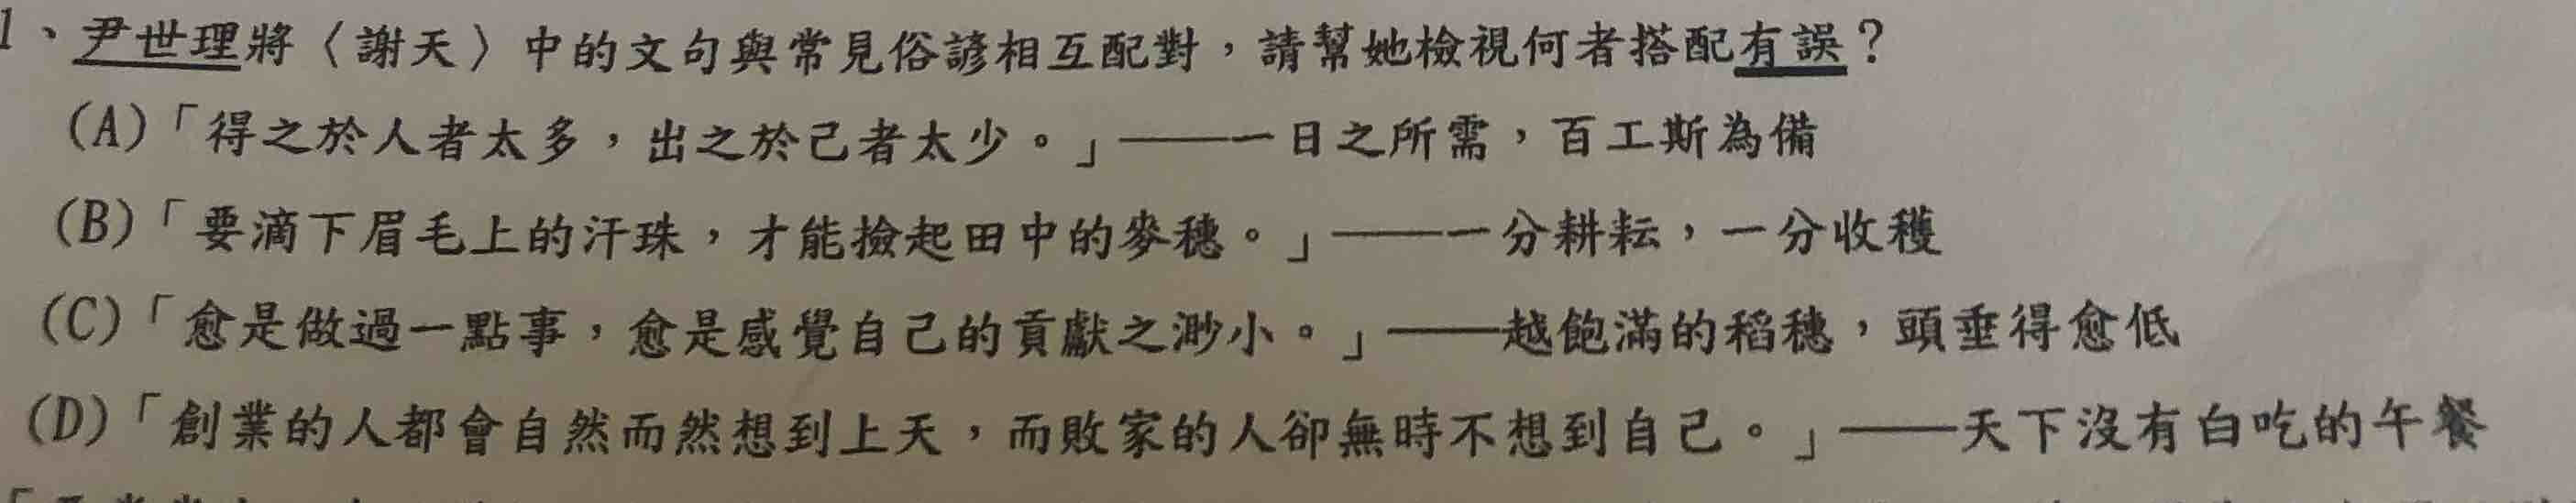 1、尹世理將〈謝天〉中的文句與常見俗諺相互配對，請幫她檢視何者搭配有誤？
(A)「得之於人者太多，出之於己者太少。」——一日之所需，百工斯為備
(B)「要滴下眉毛上的汗珠，才能撿起田中的麥穗。」——一分耕耘，一分收穫
(C)「愈是做過一點事，愈是感覺自己的貢獻之渺小。」——越飽滿的稻穗，頭垂得愈低
(D)「創業的人都會自然而然想到上天，而敗家的人卻無時不想到自己。」——天下沒有白吃的午餐